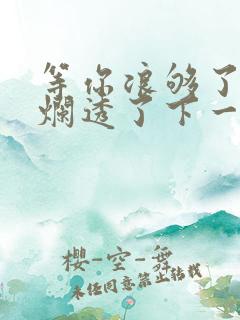 等你浪够了
烂透了下一
樱-空-舞
未经同意禁止转载